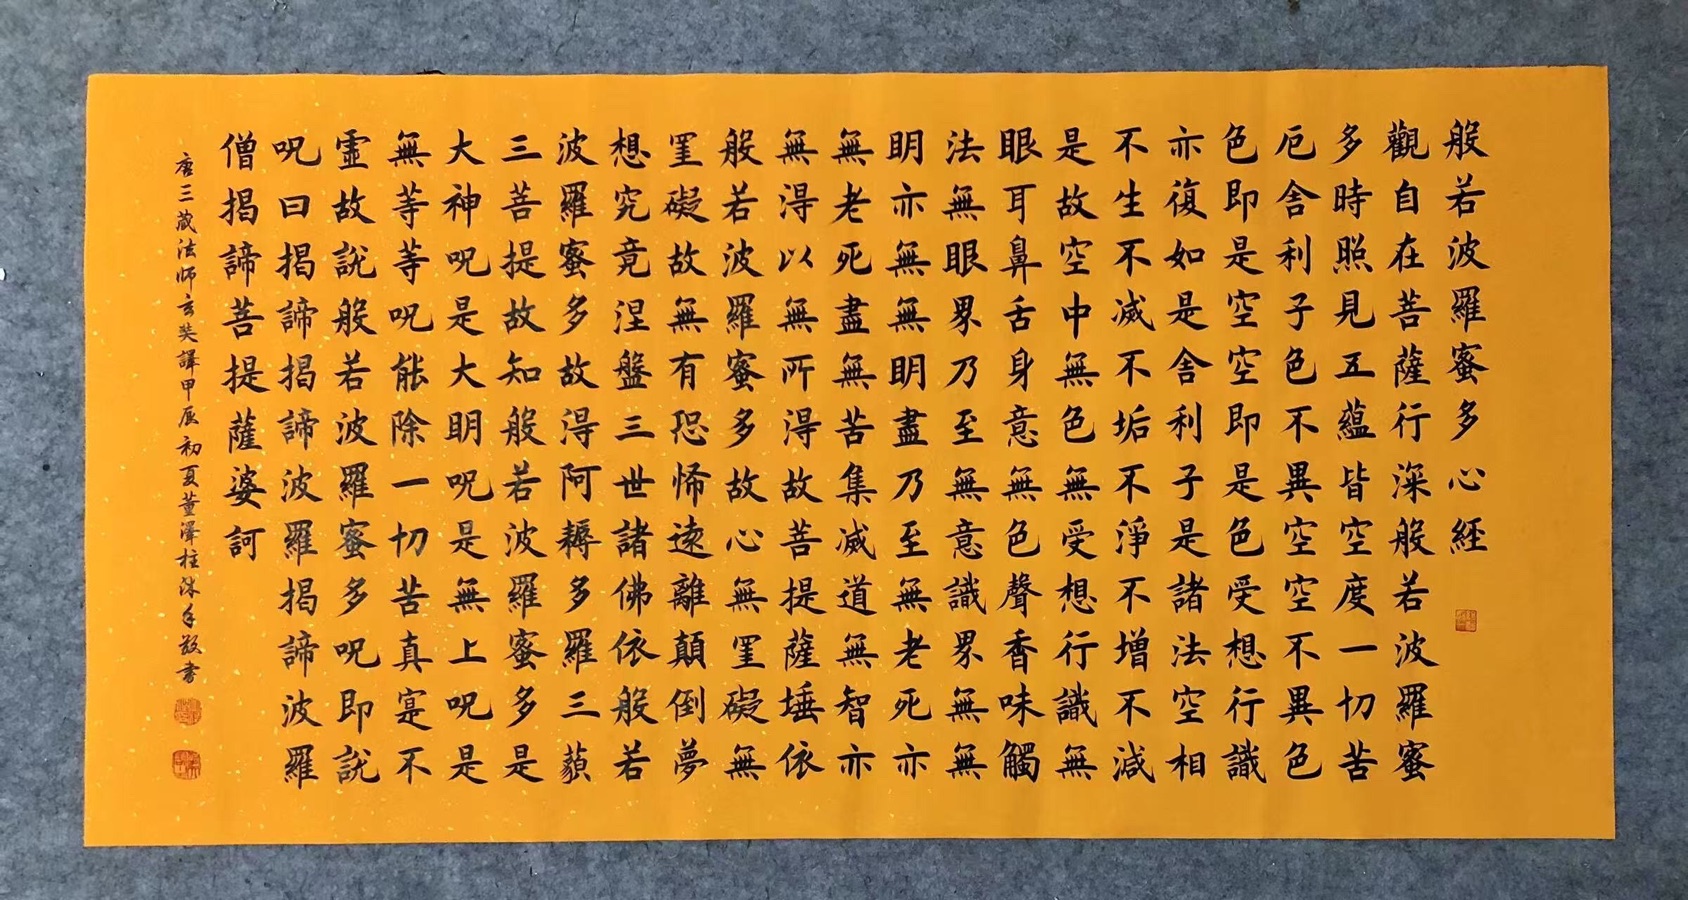 般若波羅蜜多心經
觀自在菩薩行深般若波羅蜜
多時照見五蘊皆空度一切苦
厄舍利子色不異空空不異色
色即是空空即是色受想行識
亦復如是舍利子是諸法空相
不生不滅不垢不淨不增不減
是故空中無色無受想行識無
眼耳鼻舌身意無色聲香味觸
法無眼界乃至無意識界無無
明亦無無明盡乃至無老死亦
無老死盡無苦集滅道無智亦
無得以無所得故菩提薩埵依
般若波羅蜜多故心無罣礙無
罣礙故無有恐怖遠離顛倒夢
想究竟涅盤三世諸佛依般若
波羅蜜多故得阿耨多羅三藐
三菩提故知般若波羅蜜多是
大神呪是大明呪是無上呪是
無等等呪能除一切苦真寔不
虛故說般若波羅蜜多呪即說
呪曰揭諦揭諦波羅揭諦波羅
僧揭諦菩提薩婆訶
唐三藏法師玄奘譯甲辰初夏董澤柱沐手敬書